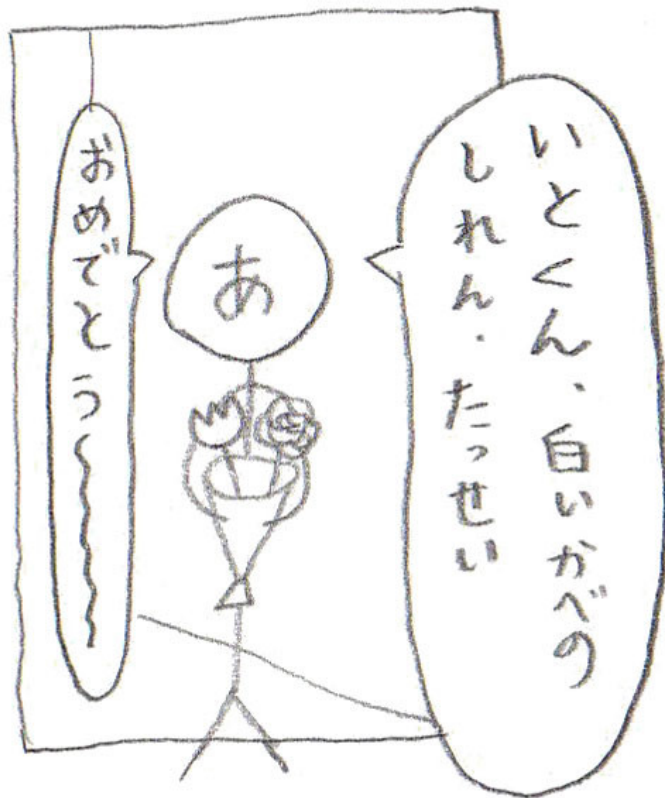 いとくん、白いかべの
しれん、たっせい
あ
おめでとう〜〜〜〜〜